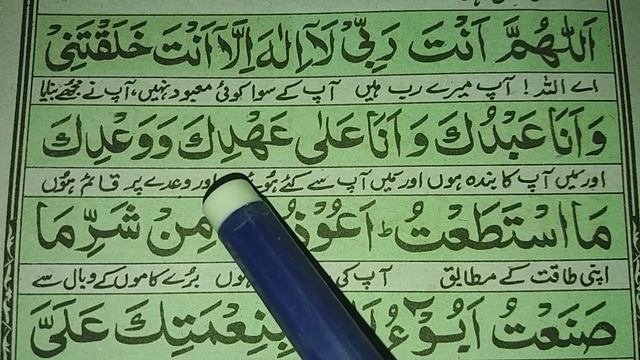 اَللّٰهُمَّ اَنْتَ رَبِّیْ لَاۤ اِلٰهَ اِلَّاۤ اَنْتَ خَلَقْتَنِیْ
اے اللہ! آپ میرے رب ہیں آپ کے سوا کوئی معبود نہیں، آپ نے مجھے بنایا
وَ اَنَا عَبْدُكَ وَ اَنَا عَلٰی عَهْدِكَ وَ وَعْدِكَ
اور میں آپ کا بندہ ہوں اور میں آپ سے کئے ہوئے اور وعدے پر قائم ہوں
مَا اسْتَطَعْتُ ط اَعُوْذُ مِنْ شَرِّ مَا
اپنی طاقت کے مطابق آپ کی ہوں بُرے کاموں کے وبال سے
صَنَعْتُ اَبُوْٓءُ بِنِعْمَتِكَ عَلَیَّ